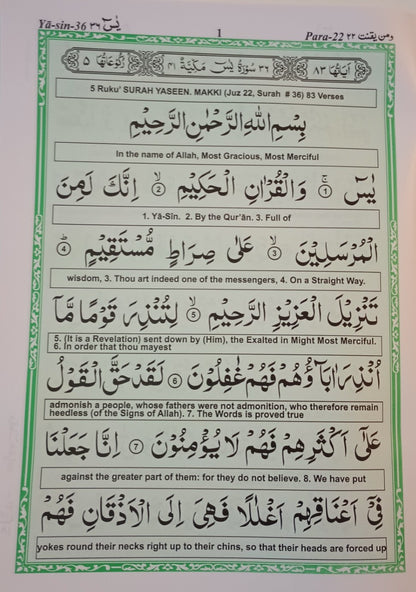 Yā-sin-36 یٰسٓ ۳۶
1
Para-22 ومن یقنت ۲۲
اٰیاتُهَا ۸۳
۳۶ سُوْرَةُ یٰسٓ مَكِّیَّةٌ ۴۱
رُكُوْعَاتُهَا ۵
5 Ruku' SURAH YASEEN. MAKKI (Juz 22, Surah # 36) 83 Verses
بِسْمِ اللّٰهِ الرَّحْمٰنِ الرَّحِیْمِ
In the name of Allah, Most Gracious, Most Merciful
یٰسٓ ① وَالْقُرْاٰنِ الْحَكِیْمِ ② اِنَّكَ لَمِنَ
1. Yā-Sīn. 2. By the Qur'ān. 3. Full of
الْمُرْسَلِیْنَ ③ عَلٰى صِرَاطٍ مُّسْتَقِیْمٍ ④
wisdom, 3. Thou art indeed one of the messengers, 4. On a Straight Way.
تَنْزِیْلَ الْعَزِیْزِ الرَّحِیْمِ ⑤ لِتُنْذِرَ قَوْمًا مَّاۤ
5. (It is a Revelation) sent down by (Him), the Exalted in Might Most Merciful.
6. In order that thou mayest
اُنْذِرَ اٰبَآؤُهُمْ فَهُمْ غٰفِلُوْنَ ⑥ لَقَدْ حَقَّ الْقَوْلُ
admonish a people, whose fathers were not admonition, who therefore remain
heedless (of the Signs of Allah). 7. The Words is proved true
عَلٰۤى اَكْثَرِهِمْ فَهُمْ لَا یُؤْمِنُوْنَ ⑦ اِنَّا جَعَلْنَا
against the greater part of them: for they do not believe. 8. We have put
فِیْۤ اَعْنَاقِهِمْ اَغْلٰلًا فَهِیَ اِلَى الْاَذْقَانِ فَهُمْ
yokes round their necks right up to their chins, so that their heads are forced up